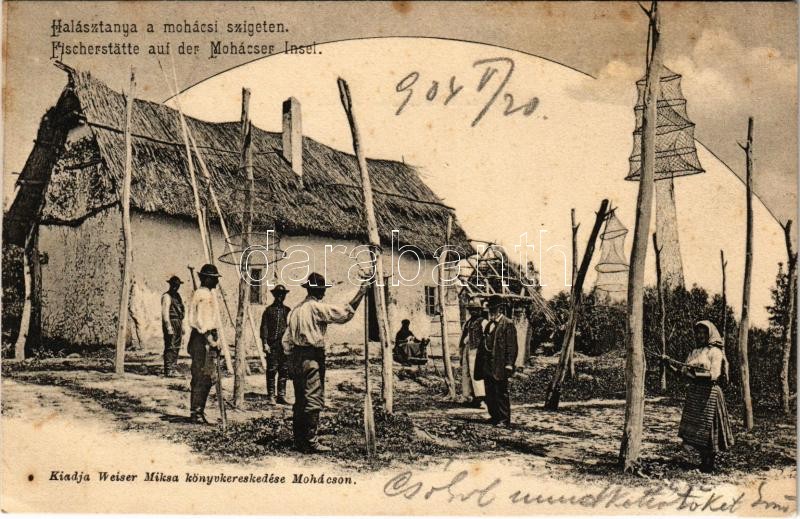 Halásztanya a mohácsi szigeten.
Fischerstätte auf der Mohácser Insel.
904 VI/20.
darabanth.com
Kiadja Weiser Miksa könyvkereskedése Mohácson.
Csókol